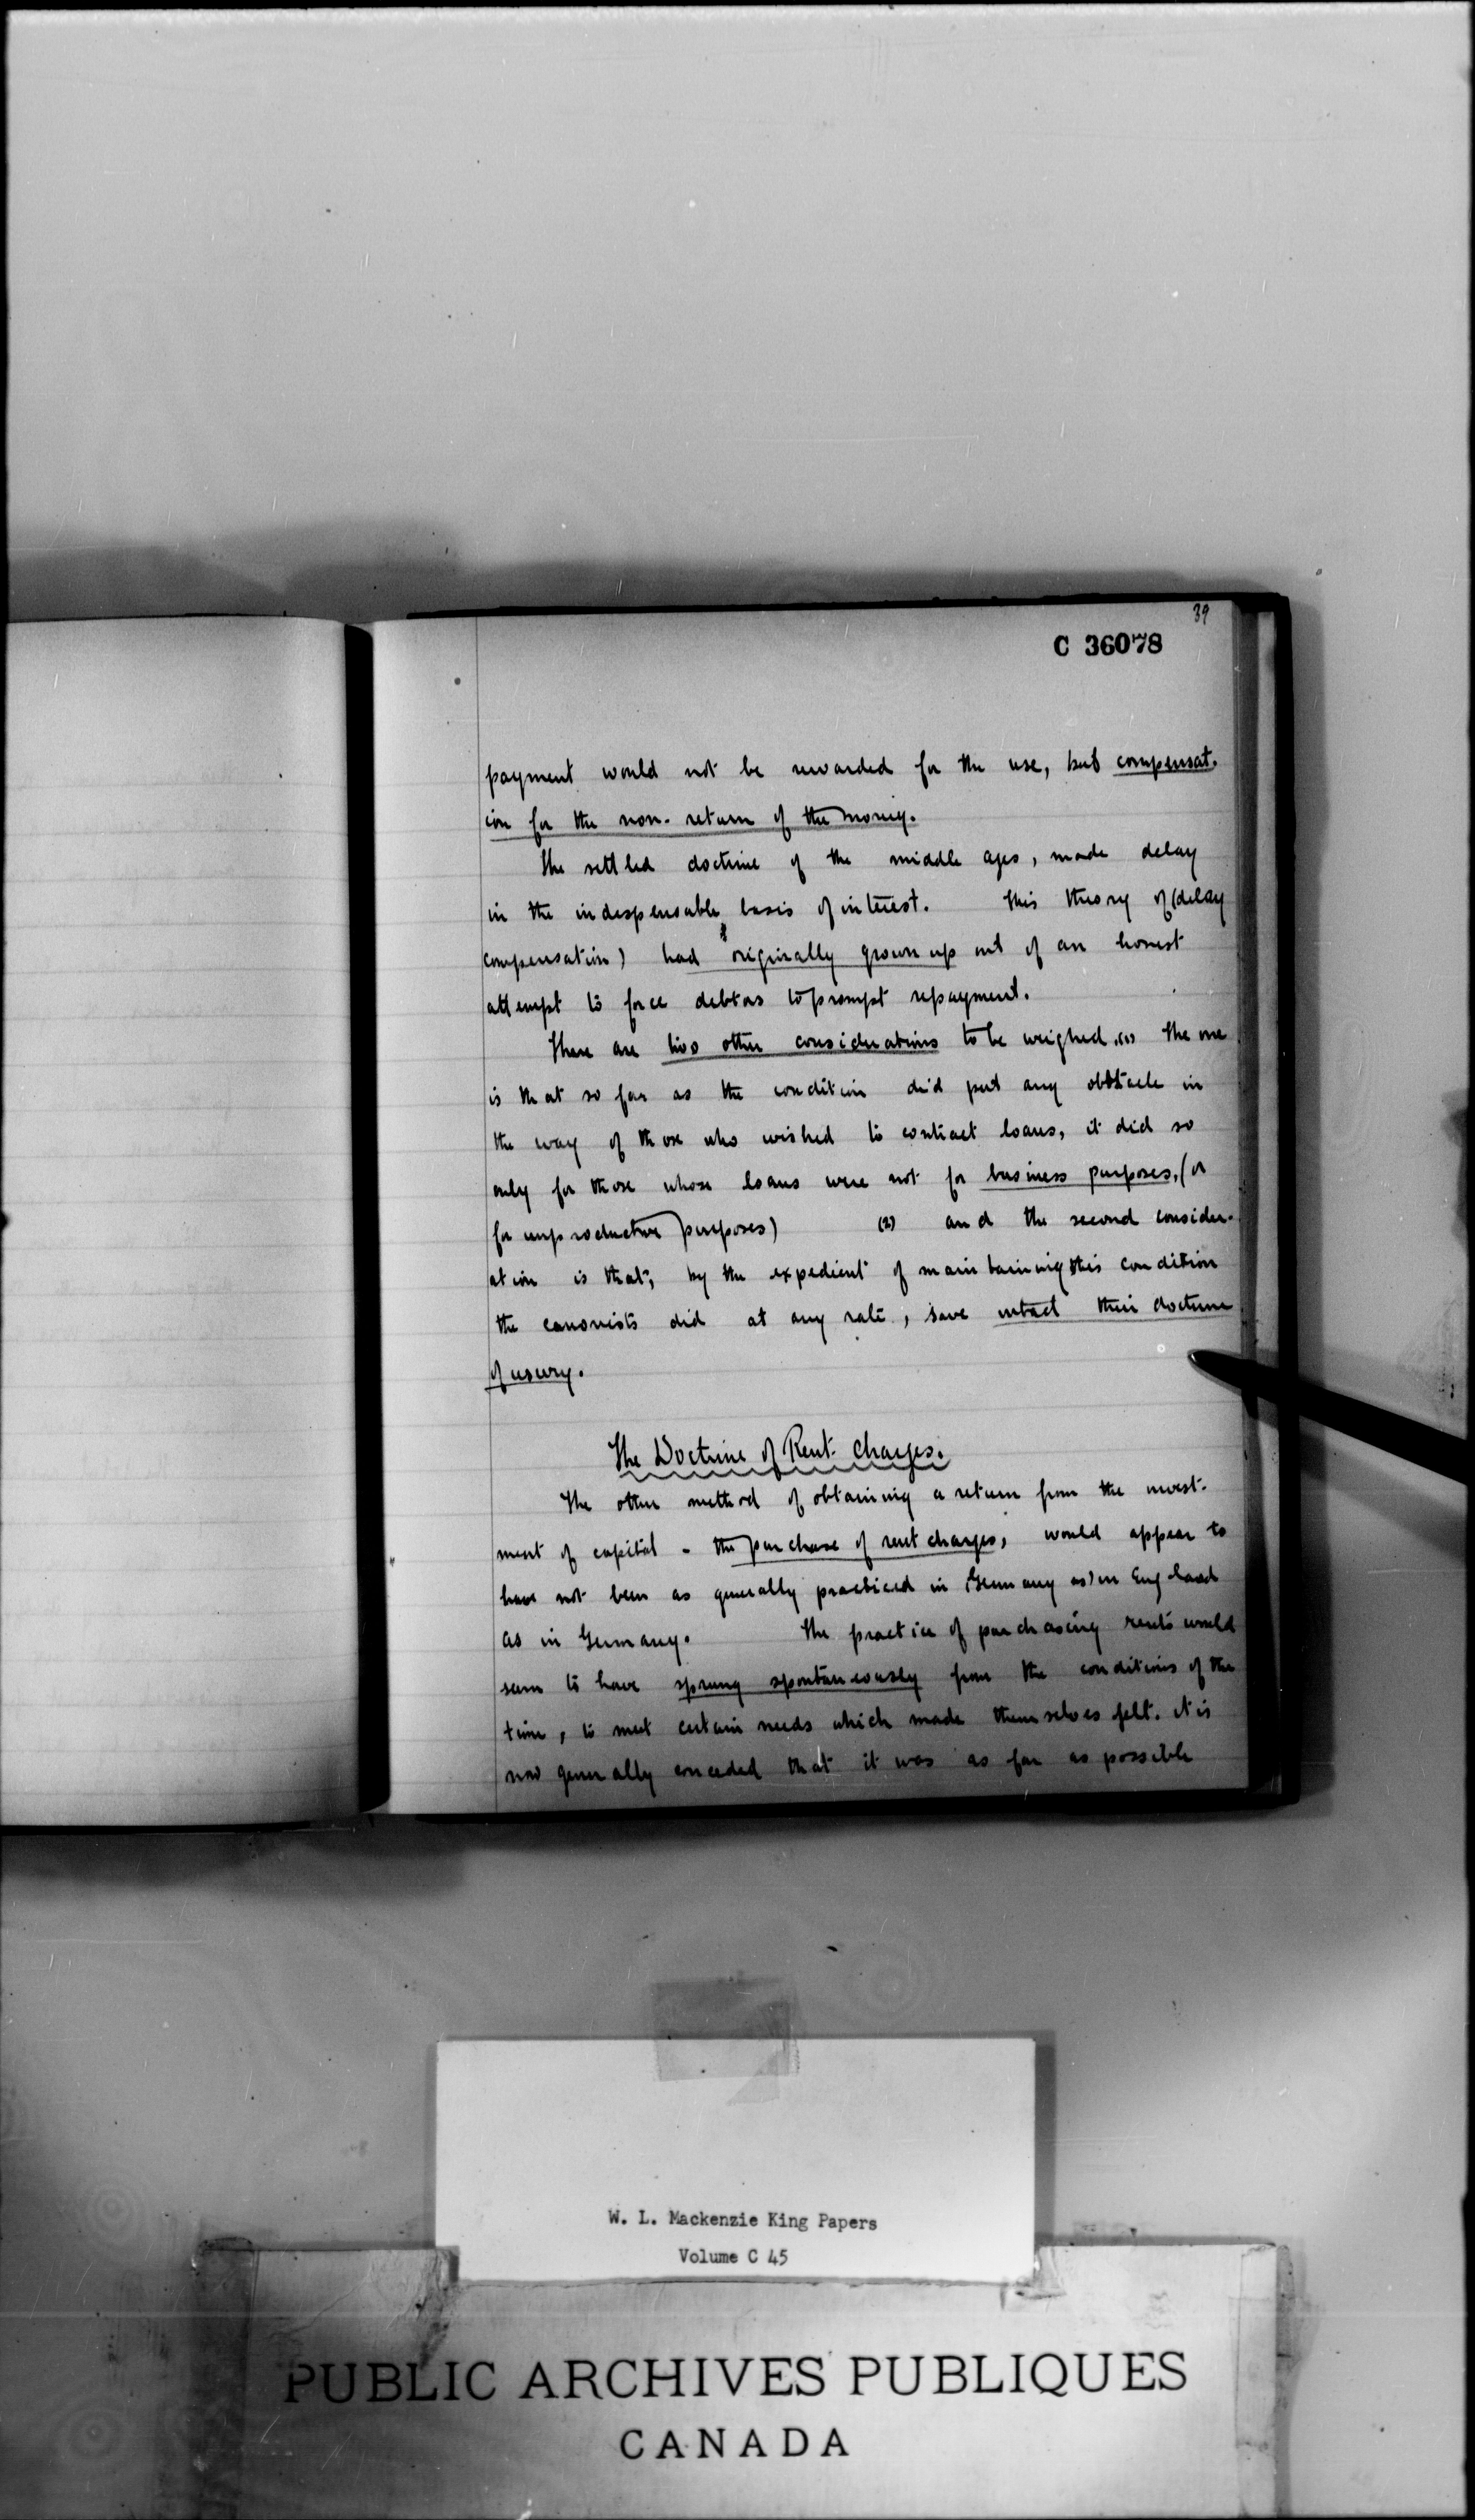 39
C 36078
payment would not be rewarded for the use, but compensat-
ion for the non-return of the money.
The settled doctrine of the middle ages, made delay
in the indespensable basis of interest. This theory of (delay
compensation) had originally grown up out of an honest
attempt to force debtors to prompt repayment.
There are two other considerations to be weighed. (1) The one
is that so far as the condition did put any obstacle in
the way of those who wished to contract loans, it did so
only for those whose loans were not for business purposes, (or
for unproductive purposes) (2) and the second consider-
ation is that, by the expedient of maintaining this condition
the canonists did at any rate, save intact their doctrine
of usury.
The Doctrine of Rent-Charges.
The other method of obtaining a return from the invest-
ment of capital - the purchase of rent charges, would appear to
have not been as generally practiced in (Germany as) in England
as in Germany. The practice of purchasing rents would
seem to have sprung spontaneously from the conditions of the
time, to meet certain needs which made themselves felt. it is
now generally conceded that it was as far as possible
W. L. Mackenzie King Papers
Volume C 45
PUBLIC ARCHIVES PUBLIQUES
CANADA